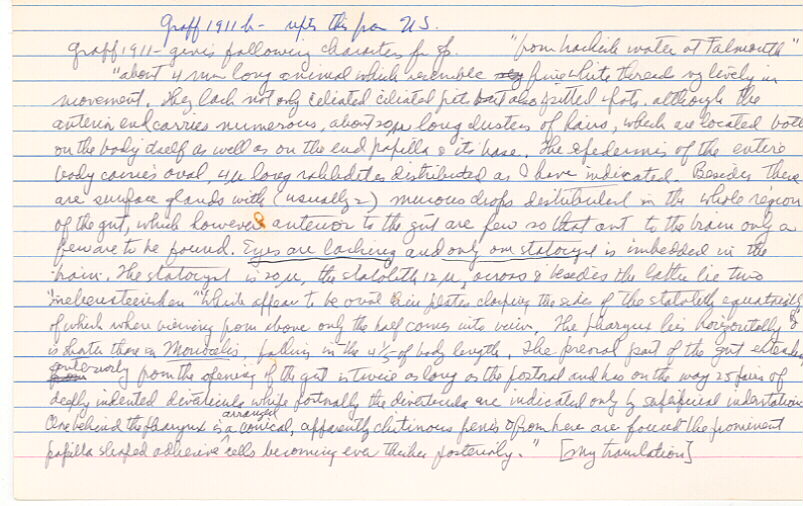 Graff 1911 b - repts this from U.S.
Graff 1911 - gives following characters for sp. "from brackish water at Falmouth"
"about 4 mm long animal which resemble fine white thread very lively in
movement. They lack not only ciliated ciliated pits but also pitted spots. although the
anterior end carries numerous, about 20µ long clusters of hairs, which are located both
on the body itself as well as on the end papilla & its base. The epidermis of the entire
body carries oval, 4µ long rhabdites distributed as I have indicated. Besides these
are surface glands with (usually 2) mucous drops distributed in the whole region
of the gut, which however anterior to the gut are few so that ant to the brain only a
few are to be found. Eyes are lacking and only one statocyst is imbedded in the
brain. The statocyst is 20µ, the statolith 12µ, across & besides the latter lie two
"nebensteinchen" which appear to be oval thin plates clasping the sides of the statolith equatorially
of which where viewing from above only the half comes into view. The pharynx lies horizontally &
is shorter than in Monocelis, falling in the 4/5 of body length. The preoral part of the gut extending
anteriorly from the opening of the gut is twice as long as the postoral and has on the way 25 pairs of
deeply indented diverticula while postorally the diverticula are indicated only by superficial indentations
One behind the pharynx is a arranged conical, apparently chitinous penis & from here are found the prominent
papilla shaped adhesive cells becoming ever thicker posteriorly." [my translation]